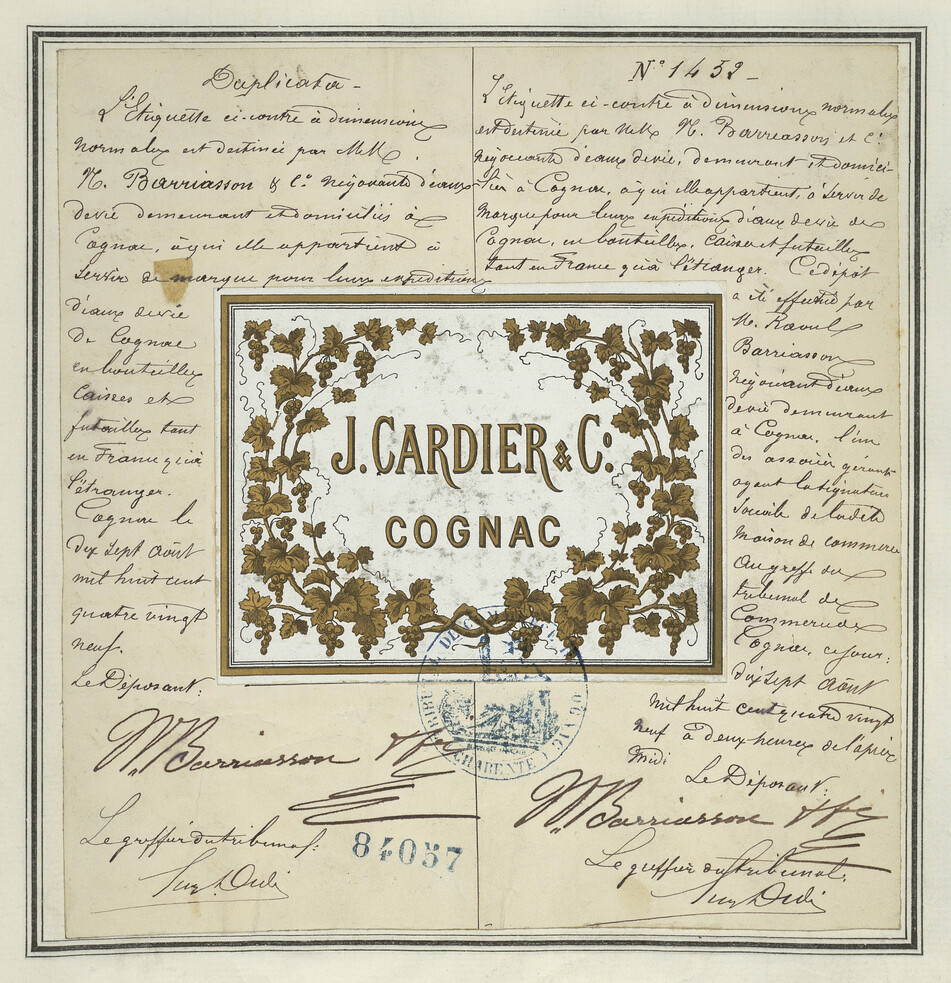 Duplicata -
L'Etiquette ci-contre à dimensions
normales est destinée par MM.
N. Barriasson & Cº négociants d'eaux-
de vie demeurant et domiciliés à
Cognac, à qui elle appartient à
servir de marque pour leurs expéditions
d'eaux de vie
de Cognac
en bouteilles
caisses et
futailles tant
en France qu'à
l'étranger.
Cognac le
dix sept août
mil huit cent
quatre vingt
neuf.
Le Déposant:
N. Barriasson & Cie
Le greffier du tribunal:
84057
Nº 1452 -
L'Etiquette ci-contre à dimensions normales
est destinée par MM. N. Barriasson et Cº
négociants d'eaux de vie, demeurant et domici-
liés à Cognac, à qui elle appartient, à servir de
marque pour leurs expéditions d'eaux de vie de
Cognac, en bouteilles, caisses et futailles
tant en France qu'à l'étranger. Ce dépôt
a été effectué par
M. Raoul
Barriasson
négociant d'eaux
de vie demeurant
à Cognac, l'un
des associés gérants
ayant la signature
sociale de ladite
maison de commerce
au greffe du
tribunal de
Commerce de
Cognac, ce jour:
dix sept août
mil huit cent quatre vingt
neuf à deux heures de l'après
midi
Le Déposant:
N. Barriasson & Cie
Le greffier du tribunal:
J. CARDIER & Cº
COGNAC
TRIBUNAL DE COGNAC
CHARENTE